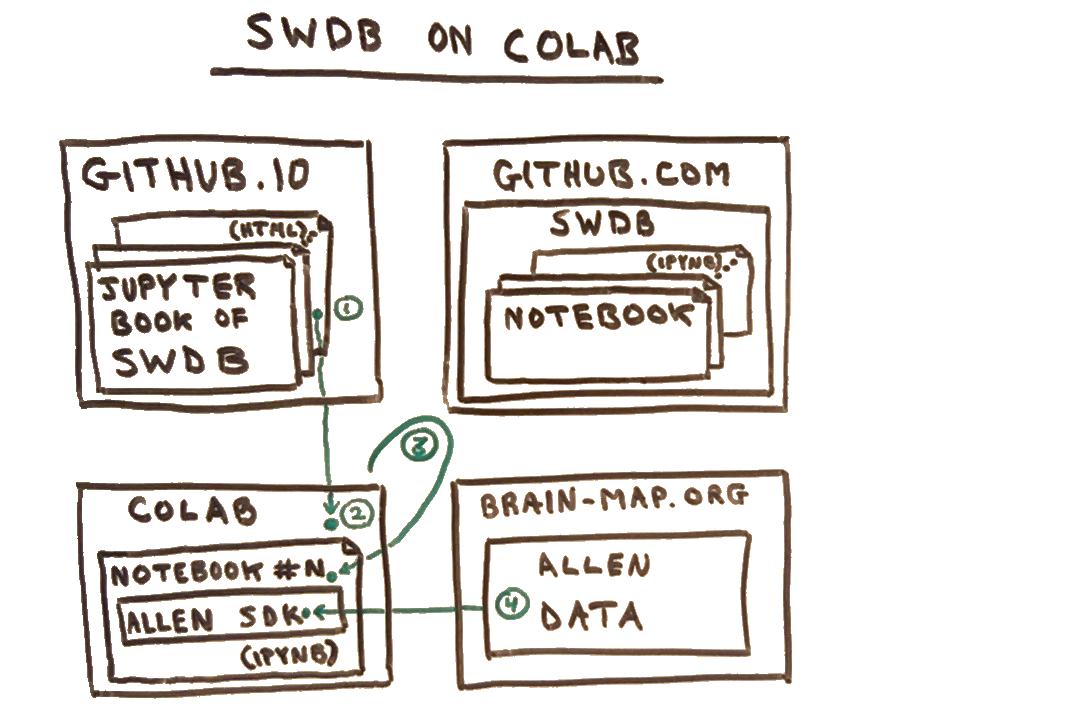 SWDB ON COLAB
GITHUB.IO
(HTML)
JUPYTER
BOOK OF
SWDB
1
GITHUB.COM
SWDB
(IPYNB)
NOTEBOOK
3
COLAB
2
NOTEBOOK #N
ALLEN SDK
(IPYNB)
BRAIN-MAP.ORG
ALLEN
4 DATA